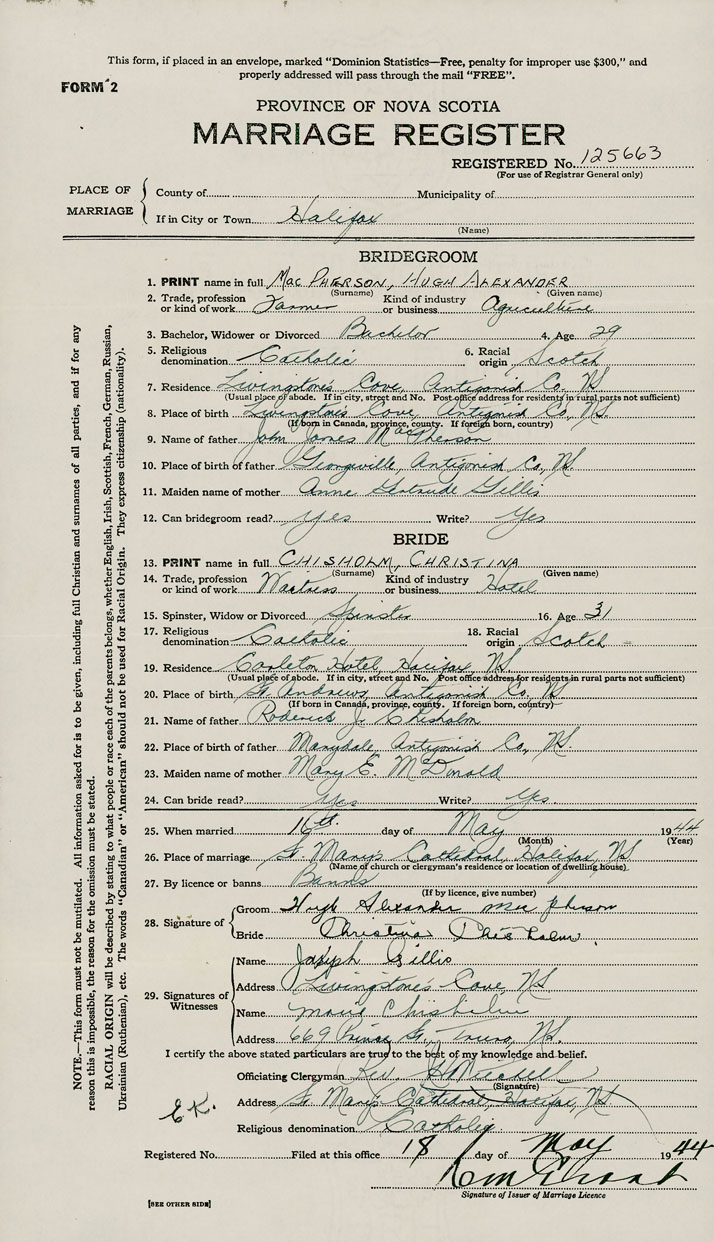 This form, if placed in an envelope, marked "Dominion Statistics—Free, penalty for improper use $300," and
properly addressed will pass through the mail "FREE".
FORM 2
PROVINCE OF NOVA SCOTIA
MARRIAGE REGISTER
REGISTERED No. 125663
(For use of Registrar General only)
PLACE OF MARRIAGE
County of Municipality of
If in City or Town Halifax
(Name)
BRIDEGROOM
1. PRINT name in full MacPHERSON, HUGH ALEXANDER
(Surname) (Given name)
2. Trade, profession or kind of work Farmer Kind of industry or business Agriculture
3. Bachelor, Widower or Divorced Bachelor 4. Age 29
5. Religious denomination Catholic 6. Racial origin Scotch
7. Residence Livingstone's Cove, Antigonish Co. NS
(Usual place of abode. If in city, street and No. Post office address for residents in rural parts not sufficient)
8. Place of birth Livingstone's Cove, Antigonish Co, NS.
(If born in Canada, province, county. If foreign born, country)
9. Name of father John James MacPherson
10. Place of birth of father Georgeville, Antigonish Co, NS.
11. Maiden name of mother Anne Gertrude Gillis
12. Can bridegroom read? Yes Write? Yes
BRIDE
13. PRINT name in full CHISHOLM, CHRISTINA
(Surname) (Given name)
14. Trade, profession or kind of work Waitress Kind of industry or business Hotel
15. Spinster, Widow or Divorced Spinster 16. Age 31
17. Religious denomination Catholic 18. Racial origin Scotch
19. Residence Carleton Hotel Halifax, NS
(Usual place of abode. If in city, street and No. Post office address for residents in rural parts not sufficient)
20. Place of birth St. Andrews, Antigonish Co. NS
(If born in Canada, province, county. If foreign born, country)
21. Name of father Roderick J. Chisholm
22. Place of birth of father Marydale, Antigonish Co, NS.
23. Maiden name of mother Mary E. McDonald
24. Can bride read? Yes Write? Yes.
25. When married 16th. day of May 1944
(Month) (Year)
26. Place of marriage St. Mary's Cathedral, Halifax, NS
(Name of church or clergyman's residence or location of dwelling house)
27. By licence or banns Banns
(If by licence, give number)
28. Signature of
Groom Hugh Alexander MacPherson
Bride Christina Chisholm
29. Signatures of Witnesses
Name Joseph Gillis
Address Livingstone's Cove, NS
Name Marie Chisholm
Address 669 Prince St., Truro, NS.
I certify the above stated particulars are true to the best of my knowledge and belief.
Officiating Clergyman Rev.
(Signature)
Address St. Mary's Cathedral, Halifax, NS
E.K.
Religious denomination Catholic
Registered No. Filed at this office 18 day of May 1944
Signature of Issuer of Marriage Licence
[SEE OTHER SIDE]
NOTE.—This form must not be mutilated. All information asked for is to be given, including full Christian and surnames of all parties, and if for any
reason this is impossible, the reason for the omission must be stated.
RACIAL ORIGIN will be described by stating to what people or race each of the parents belongs, whether English, Irish, Scottish, French, German, Russian,
Ukrainian (Ruthenian), etc. The words "Canadian" or "American" should not be used for Racial Origin. They express citizenship (nationality).